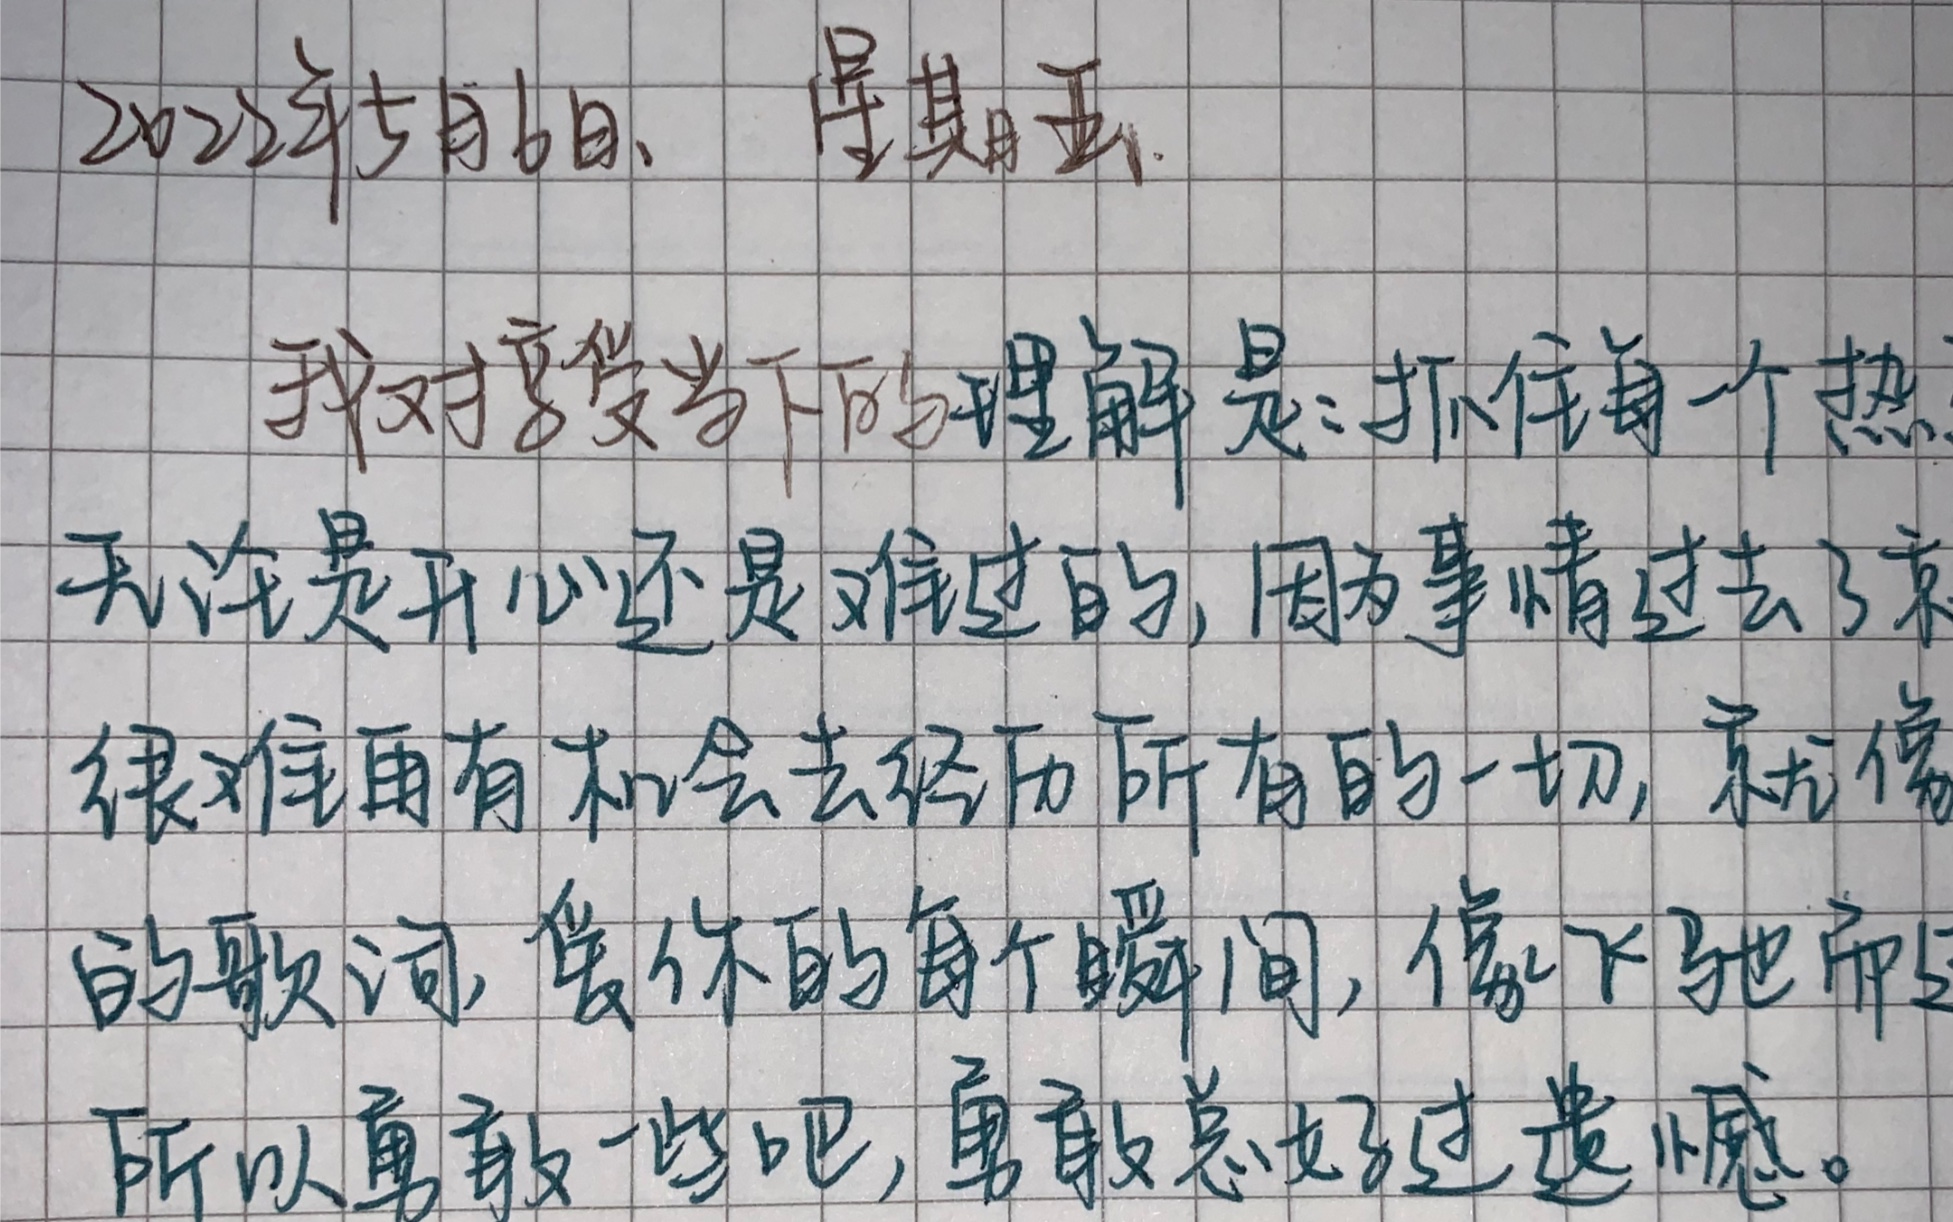 2022年5月6日、 星期五.
我对享受当下的理解是:抓住每一个热
无论是开心还是难过的,因为事情过去了
很难再有机会去经历所有的一切,就像
的歌词,爱你的每个瞬间,像飞驰而
所以勇敢一些吧,勇敢总好过遗憾。